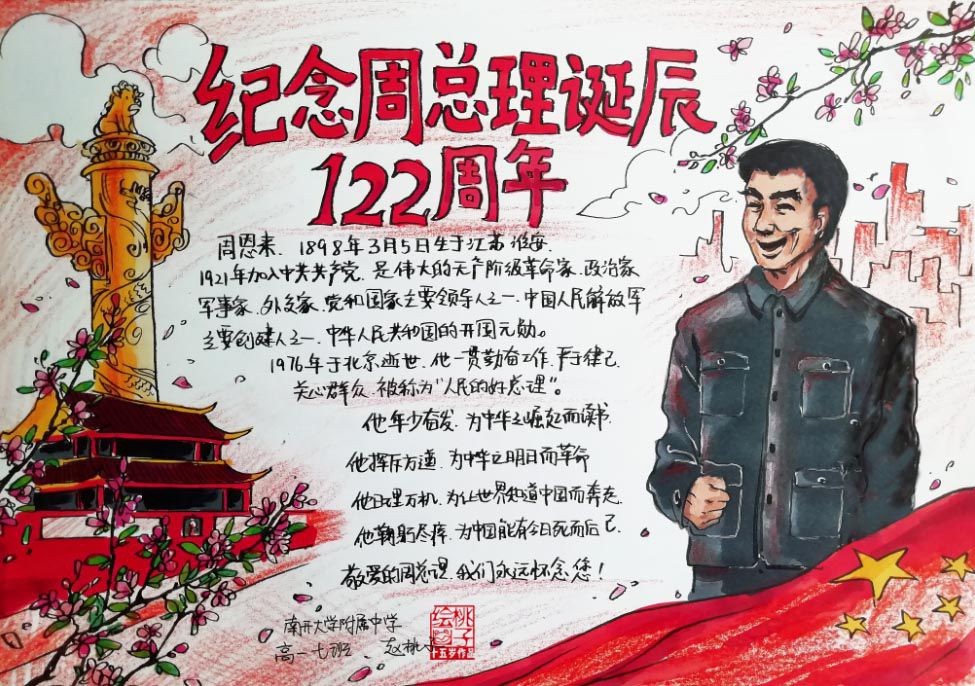 纪念周总理诞辰
122周年
周恩来、1898年3月5日生于江苏淮安.
1921年加入中共共产党、是伟大的无产阶级革命家、政治家
军事家、外交家、党和国家主要领导人之一、中国人民解放军
主要创建人之一、中华人民共和国的开国元勋。
1976年于北京逝世、他一贯勤奋工作、严于律己
关心群众、被称为“人民的好总理”。
他年少奋发、为中华之崛起而读书.
他挥斥方遒、为中华之明日而革命
他日理万机、为让世界知道中国而奔走.
他鞠躬尽瘁、为中国能有今日死而后已.
敬爱的周总理、我们永远怀念您！
南开大学附属中学
高一七班 赵桃
桃子
绘
十五岁作品